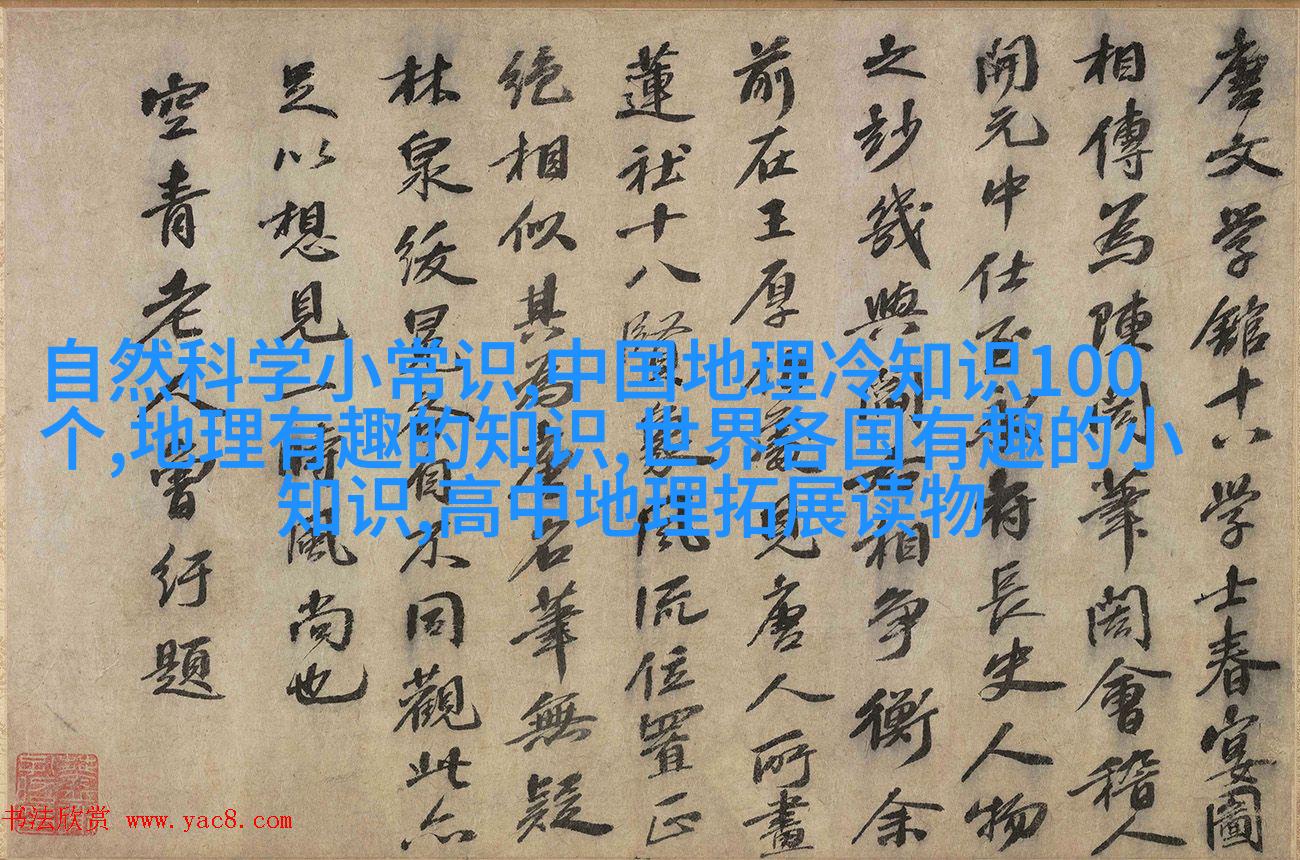 唐文学館十八学士春宴圖
相傳為陳閎筆閎會稽人
開元中仕府長史人物
之妙幾與閻相争衡余
前在王厚見唐人所畫
蓮社十八賢風流位置正
絶相似其為唐名筆無疑
林泉綬冕各自不同觀此亦
足以想見一時風尚也
空青老人曾紆題
自然科学小常识,中国地理冷知识100
个,地理有趣的知识,世界各国有趣的小
知识,高中地理拓展读物
书法欣赏 www.yac8.com